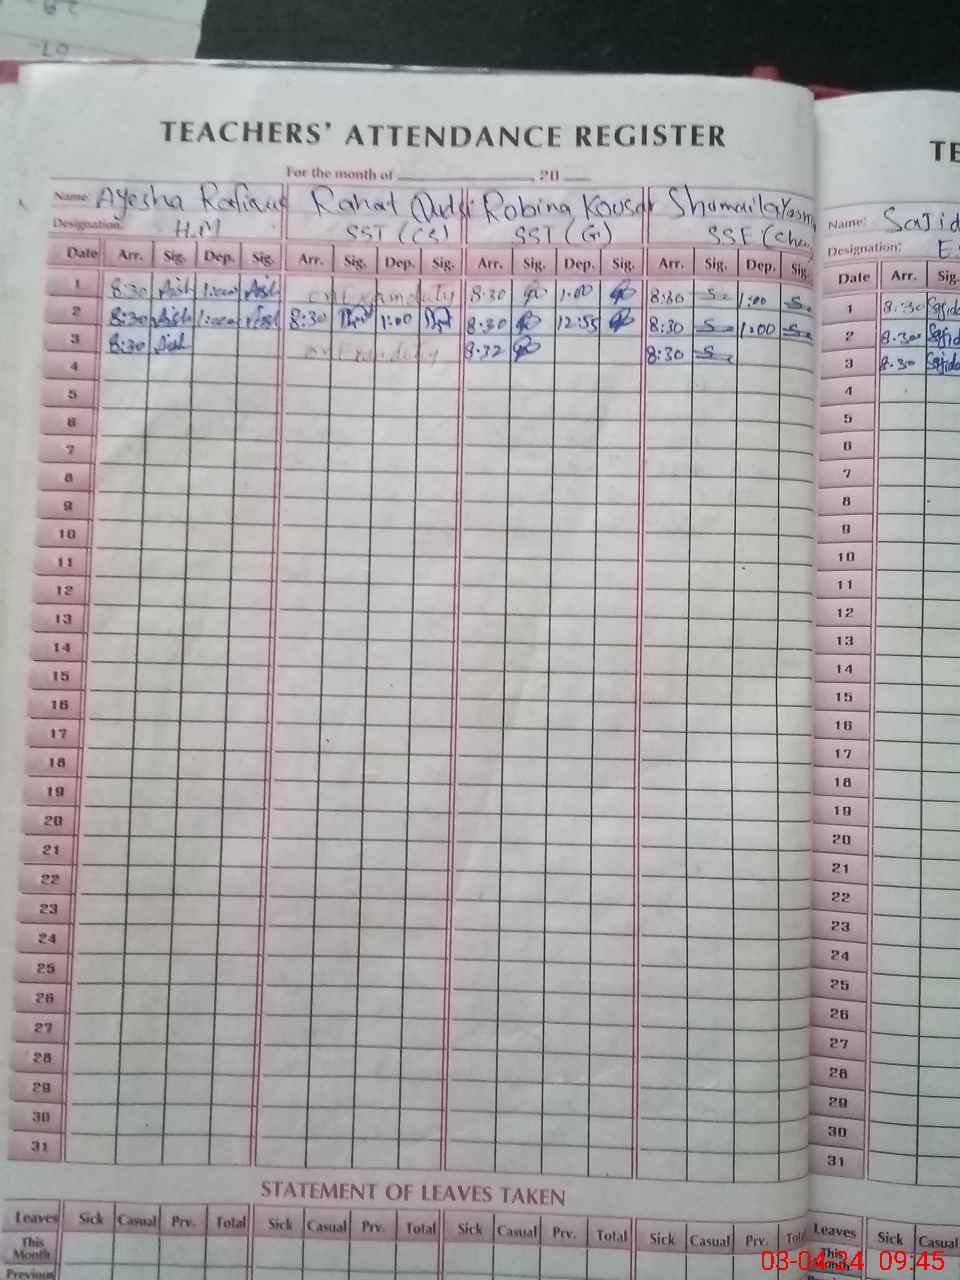 TEACHERS' ATTENDANCE REGISTER
For the month of ____________, 20 ___
Name: Ayesha Rafiaue Rahat Qudsi Robina Kousar Shumaila Yasmi
Designation: H.M SST (CS) SST (G) SSE (Che
Date Arr. Sig. Dep. Sig. Arr. Sig. Dep. Sig. Arr. Sig. Dep. Sig. Arr. Sig. Dep. Sig.
1 8:30 Aish 1:00 Aish on Exam duty 8.30 1.00 8:30 S 1:00 S
2 8:30 Aish 1:00 Aish 8:30 1:00 8.30 12:55 8:30 S 1:00 S
3 8:30 Aish on Exam duty 8.32 8:30 S
4
5
6
7
8
9
10
11
12
13
14
15
16
17
18
19
20
21
22
23
24
25
26
27
28
29
30
31
STATEMENT OF LEAVES TAKEN
Leaves Sick Casual Prv. Total Sick Casual Prv. Total Sick Casual Prv. Total Sick Casual Prv. Total
This Month
Previous
TE
Name: Sajid
Designation: E
Date Arr. Sig.
1 8.30 Sajida
2 8.30 Sajid
3 8.30 Sajida
4
5
6
7
8
9
10
11
12
13
14
15
16
17
18
19
20
21
22
23
24
25
26
27
28
29
30
31
Leaves Sick Casual
This Month
03-04-24 09:45